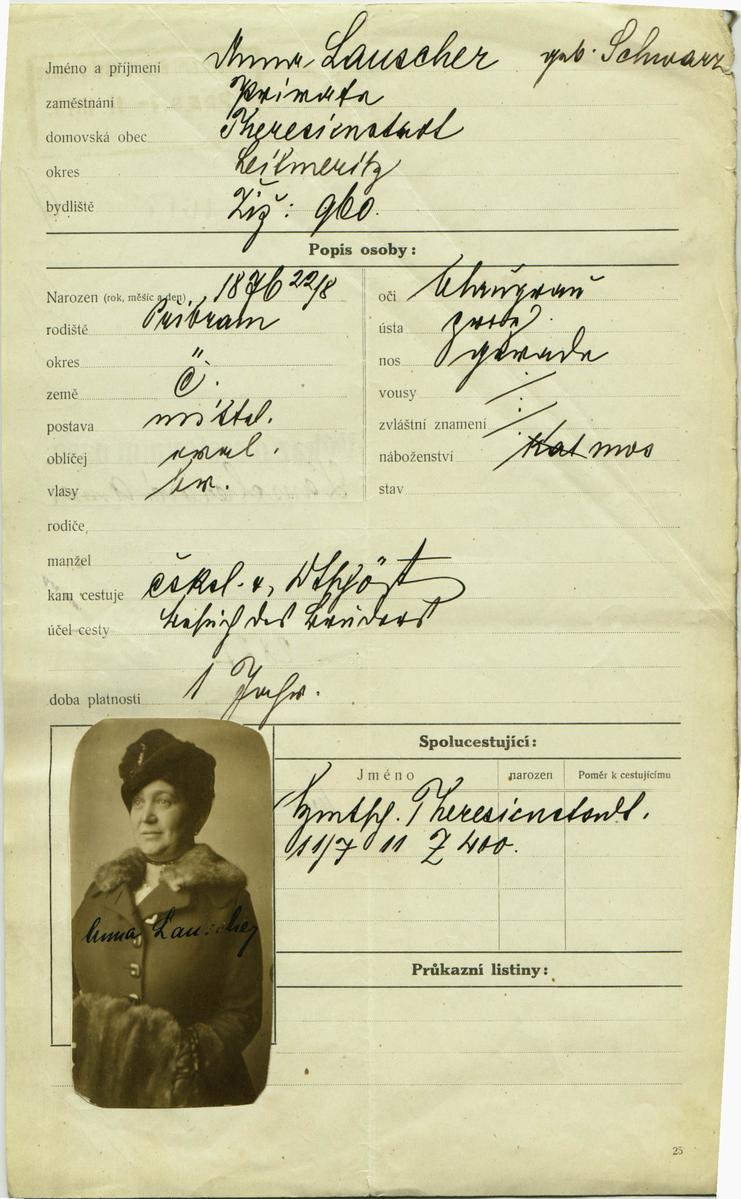 Jméno a příjmení Anna Lauscher geb. Schwarz
zaměstnání Private
domovská obec Theresienstadt
okres Leitmeritz
bydliště Žiž: 960.
Popis osoby:
Narozen (rok, měsíc a den) 1876 22/8
rodiště Přibram
okres "
země Č.
postava mittel.
obličej oval.
vlasy br.
oči blaugrau
ústa prop.
nos gerade
vousy /.
zvláštní znamení /.
náboženství mos
stav
rodiče
manžel
kam cestuje čsksl. u.
účel cesty Besuch des Bruders
doba platnosti 1 Jahr.
Spolucestující:
Jméno narozen Poměr k cestujícímu
Theresienstadt.
11/7 11 Z 400.
Průkazní listiny:
Anna Lauscher
25